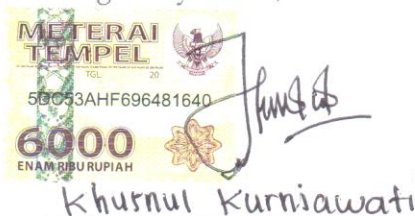 METERAI
TEMPEL
TGL. 20
5DC53AHF696481640
6000
ENAM RIBU RUPIAH
Khusnul Kurniawati